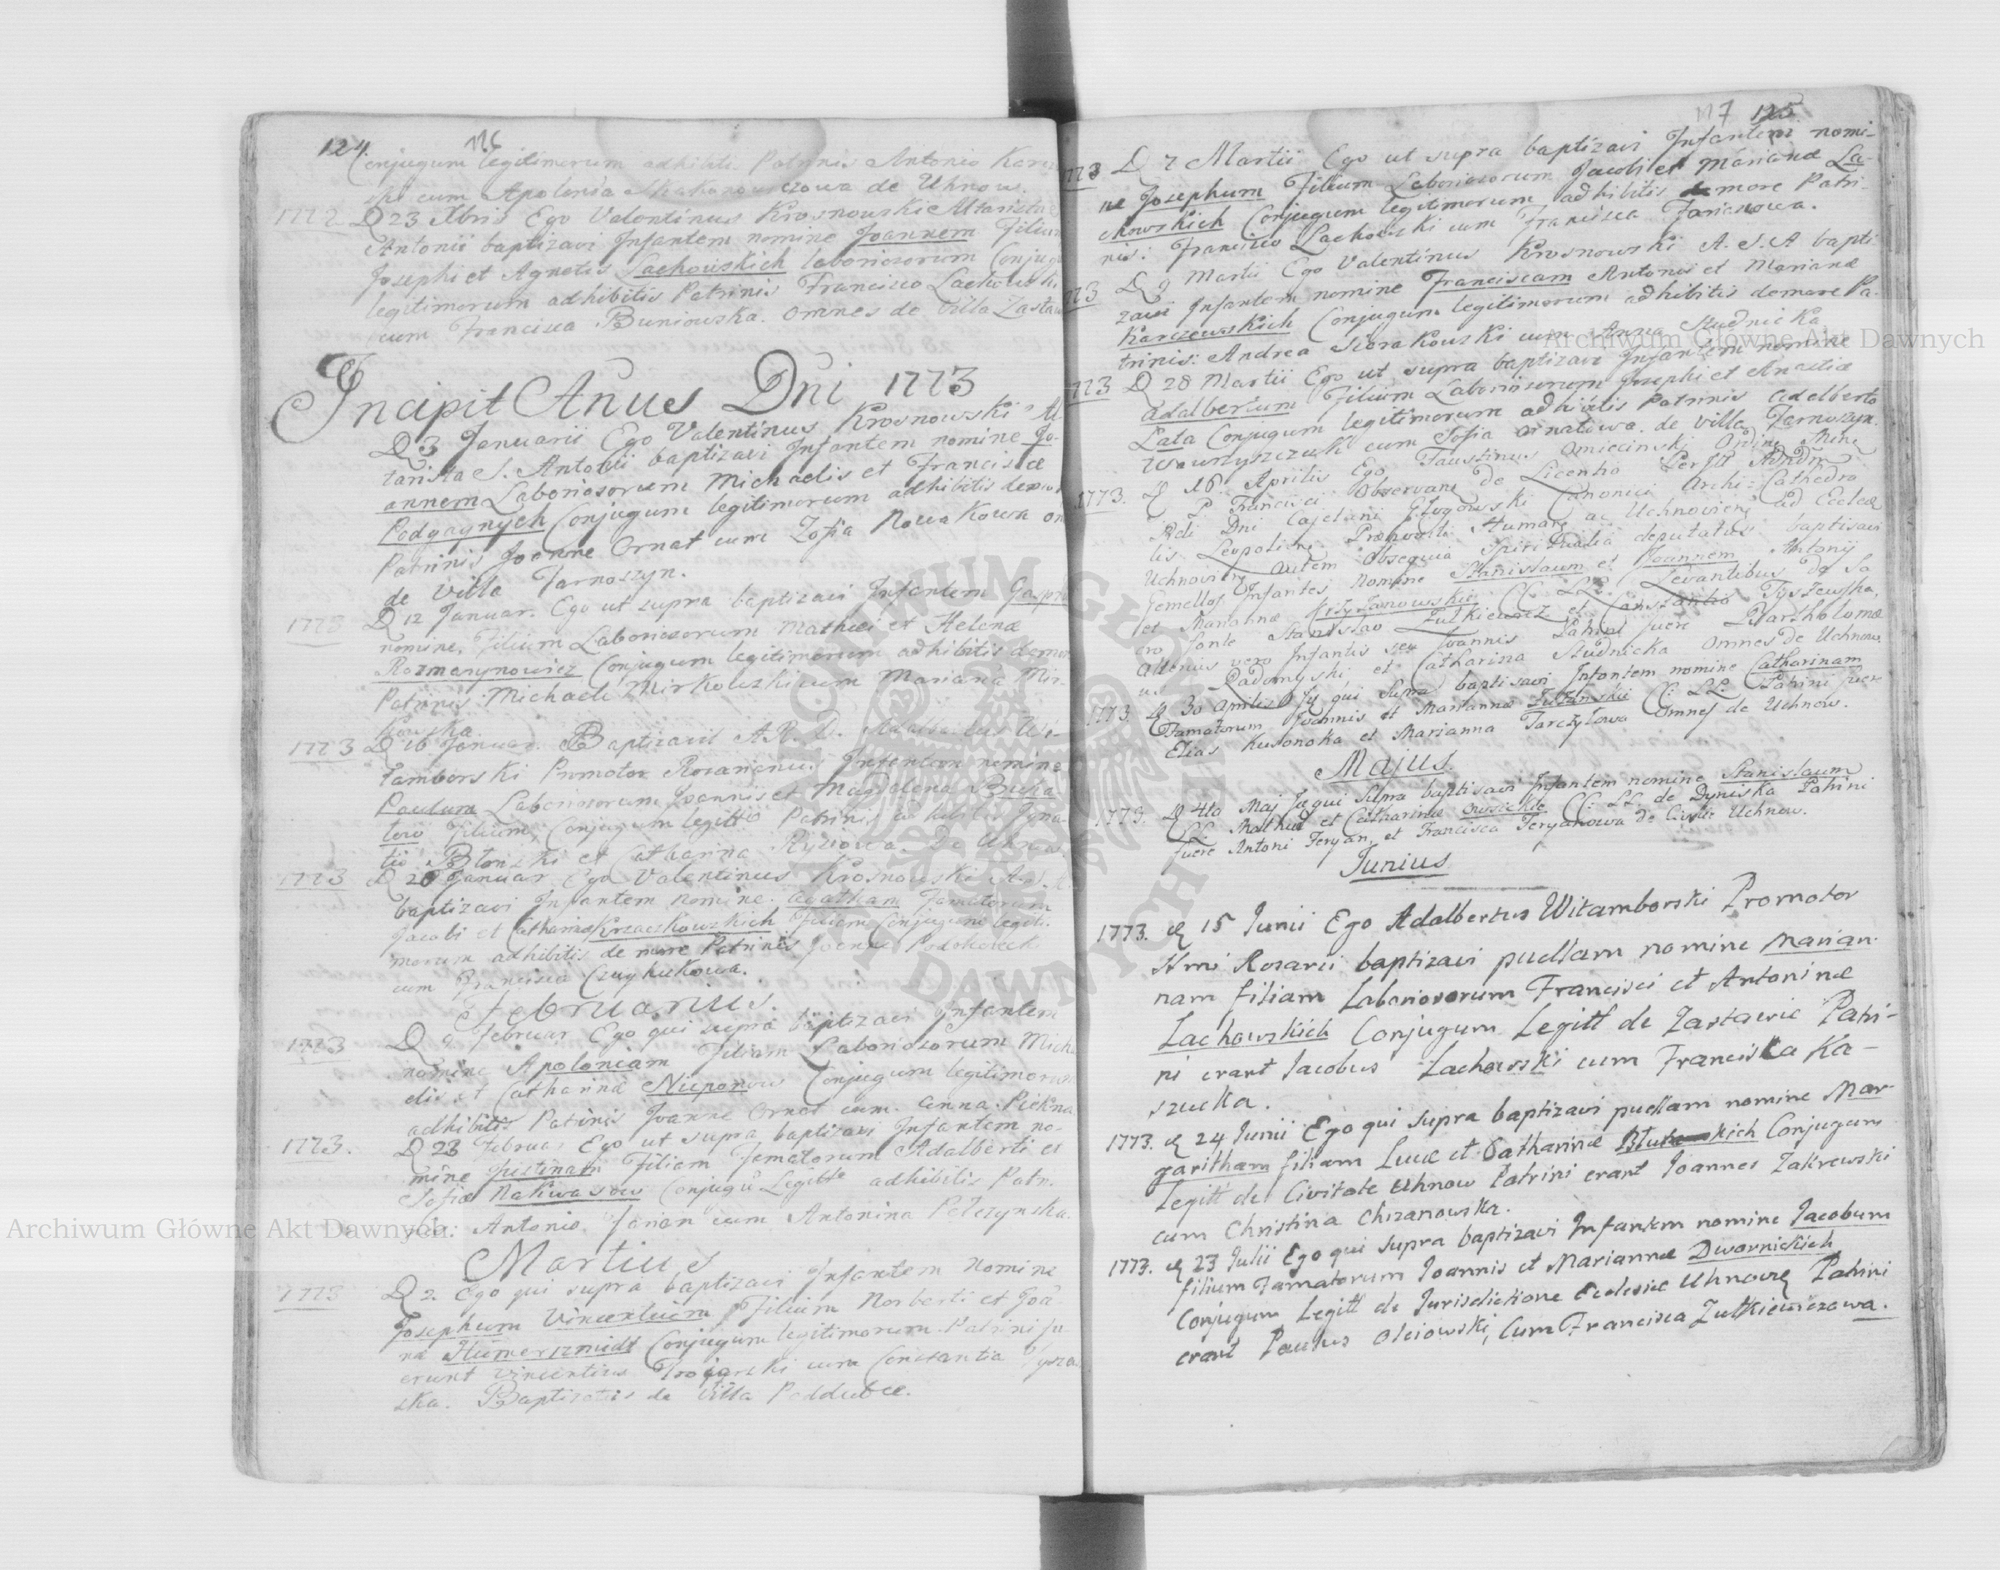 124. 116
Conjugum legitimorum adhibitis Patrinis Antonio
cum Apolonia de Uhnow.
1772 D 23 Xbris Ego Valentinus Krosnowski Altarista
Antonii baptizavi Infantem nomine Joannem Filium
Josephi et Agnetis Lachowskich laboriosorum Conjug
legitimorum adhibitis Patrinis Francisco Lachowski
cum Francisca Buniowska. omnes de Villa Zasta
Incipit Anus Dni 1773
D 3 Januarii Ego Valentinus Krosnowski Al
tarista S. Antonii baptizavi Infantem nomine Jo-
annem Laboriosorum Michaelis et Francisce
Podgagnych Conjugum legitimorum adhibitis de
Patrinis Joanne Ornat cum Zofia Nowakowa
de Villa Tarnoszyn.
1773 D 12 Januar. Ego ut supra baptizavi Infantem
nomine, Filium Laboriosorum Mathiei et Helenæ
Rozmarynowicz Conjugum legitimorum adhibitis demor
Patrinis Michaele Mirkowzki cum Mariana Mir-
kowska.
1773 D 16 Januar. Baptizavit A. R. D. Adalbertus Wi-
tamborski Promotor Rosarianus Infantem nomine
Paulum Laboriosorum Joannis et Magdalena
Filium, Conjugum legitt Patrinis
et Catharina De Uhnow
1773 D 20 Januar Ego Valentinus Krosnowski A. S.
baptizavi Infantem nomine. agatham Famatorum
Jacobi et Catharina Krzaczkowskich Filiam Conjugum legiti-
morum adhibitis de more Patrinis Joanne
cum Francisca
Februarius.
1773 D 9 Februar Ego qui supra baptizavi Infantem
nomine Apoloniam Filiam Laboriosorum Micha
elis et Catharinæ Conjugum legitimorum
adhibitis Patrinis Joanne Ornat cum anna
1773. D 23 Februar Ego ut supra baptizavi Infantem no-
mine Justinam Filiam Famatorum Adalberti et
Sofiæ Nakwasow Conjugu Legitt adhibitis Patr.
Antonio cum Antonina Pelczynska.
Martius
1773 D 2. Ego qui supra baptizavi Infantem nomine
Josephum Vincentium Filium Norberti et Joã
næ Conjugum legitimorum. Patrini fu-
erunt Vincentius cum Constantia
ska. Baptizatus de Villa Poddubce.
117 125
1773 D 7 Martii Ego ut supra baptizavi Infantem nomi-
ne Josephum Filium Laboriosorum Jacobi et Marianæ La-
chowskich Conjugum legitimorum adhibitis de more Patri-
nis: Francisco Lachowski cum Francisca
1773 D 9 Martii Ego Valentinus Krosnowski A. S. A bapti
zavi Infantem nomine Franciscam Antonii et Marianæ
Karczewskich Conjugum legitimorum adhibitis demore Pa-
trinis: Andrea cum Anna Studnicka
1773 D 28 Martii Ego ut supra baptizavi Infantem nomine
adalbertum Filium Laboriosorum Josephi et Anastiæ
Lala Conjugum legitimorum adhibitis Patrinis adelberto
Wawrzyszczuk cum Sofia Ornatowa. de Villa Tarnoszyn.
1773. D 18 Aprilis Ego Faustinus Omiecinski
S. P. Francisci Observans de Licentia
Rdi Dni Cajetani Glogowski Canonici Archi-Cathedra
lis Leopolien: Præpositi ac Uchnovien: ad Eccleæ
Uchnovien: autem Obsequia Spiritualia deputatus baptisavi
Gemellos Infantes Nomine Stanislaum et Joannem Antonij
et Mariannæ CC. LL. Levantibus de Sa
cro fonte Stanislao Zulkiewicz et Constantia Tyszewska,
alterius vero Infantis seu Joannis Patrini fuere Bartholomæ
us Radomyski et Catharina Studnicka Omnes de Uchnow.
1773. D 30 Aprilis Jq qui Supra baptisavi Infantem nomine Catharinam
Famatorum Joannis et Mariannæ CC. LL. Patrini fuere
Elias et Marianna Omnes de Uchnow.
Majus.
1773. D 4to Maj Jq qui Supra baptisavi Infantem nomine Stanislaum
LL. Mathiæ et Catharinæ CC. LL. de Dyniska Patrini
fuere Antoni Feryan, et Francisca Feryanowa de Civitte Uchnow.
Junius
1773. D 15 Junii Ego Adalbertus Witamborski Promotor
SSmi Rosarii baptizavi puellam nomine Marian-
nam filiam Laboriosorum Francisci et Antoninæ
Lachowskich Conjugum Legitt de Zastawie Patri-
ni erant Jacobus Lachowski cum Franciska Ka-
szucka.
1773. D 24 Junii Ego qui supra baptizavi puellam nomine Mar-
garitham filiam Lucæ et Catharinæ Conjugum
Legitt de Civitate Uhnow Patrini erant Joannes Zakrewski
cum Christina Chrzanowska.
1773. D 23 Julii Ego qui supra baptizavi Infantem nomine Jacobum
filium Famatorum Joannis et Mariannæ Dwornickich
Conjugum Legitt de Jurisdictione Eclesiæ Uhnovien Patrini
erant Paulus Olciowski, Cum Francisca Zulkiewiczowa.
Archiwum Główne Akt Dawnych
Archiwum Główne Akt Dawnych
ARCHIWUM GŁÓWNE AKT DAWNYCH